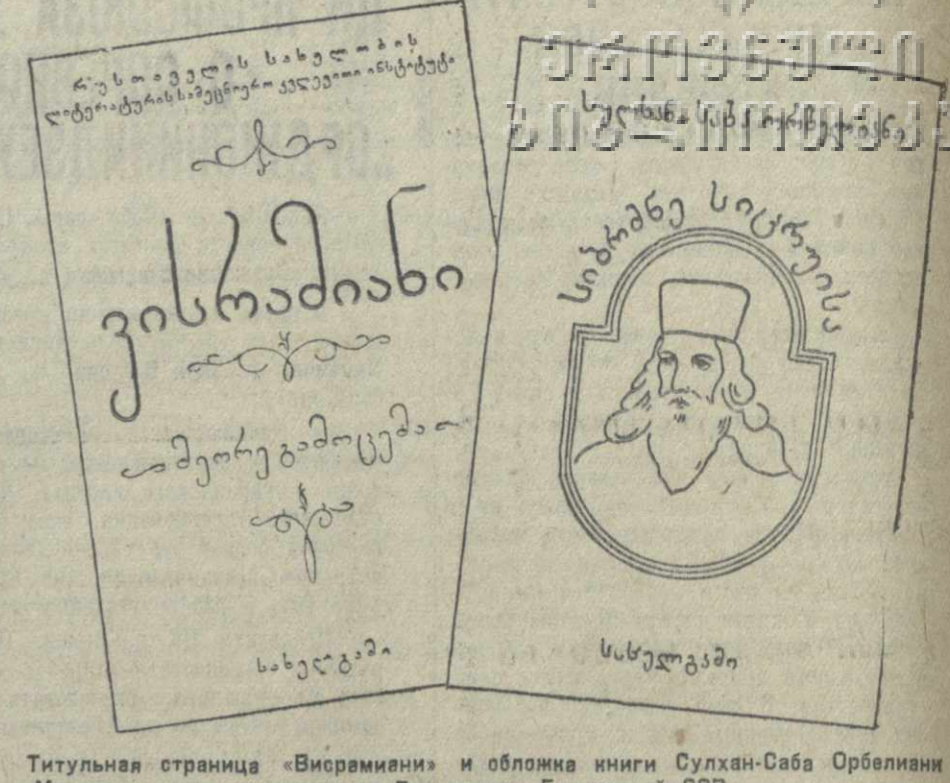 რუსთაველის სახელობის
ლიტერატურის სამეცნიერო კვლევითი ინსტიტუტი
ვისრამიანი
მეორე გამოცემა
სახელგამი
ეროვნული
ბიბლიოთეკა
სულხან-საბა ორბელიანი
სიბრძნე სიცრუისა
სახელგამი
Титульная страница «Висрамиани» и обложка книги Сулхан-Саба Орбелиани